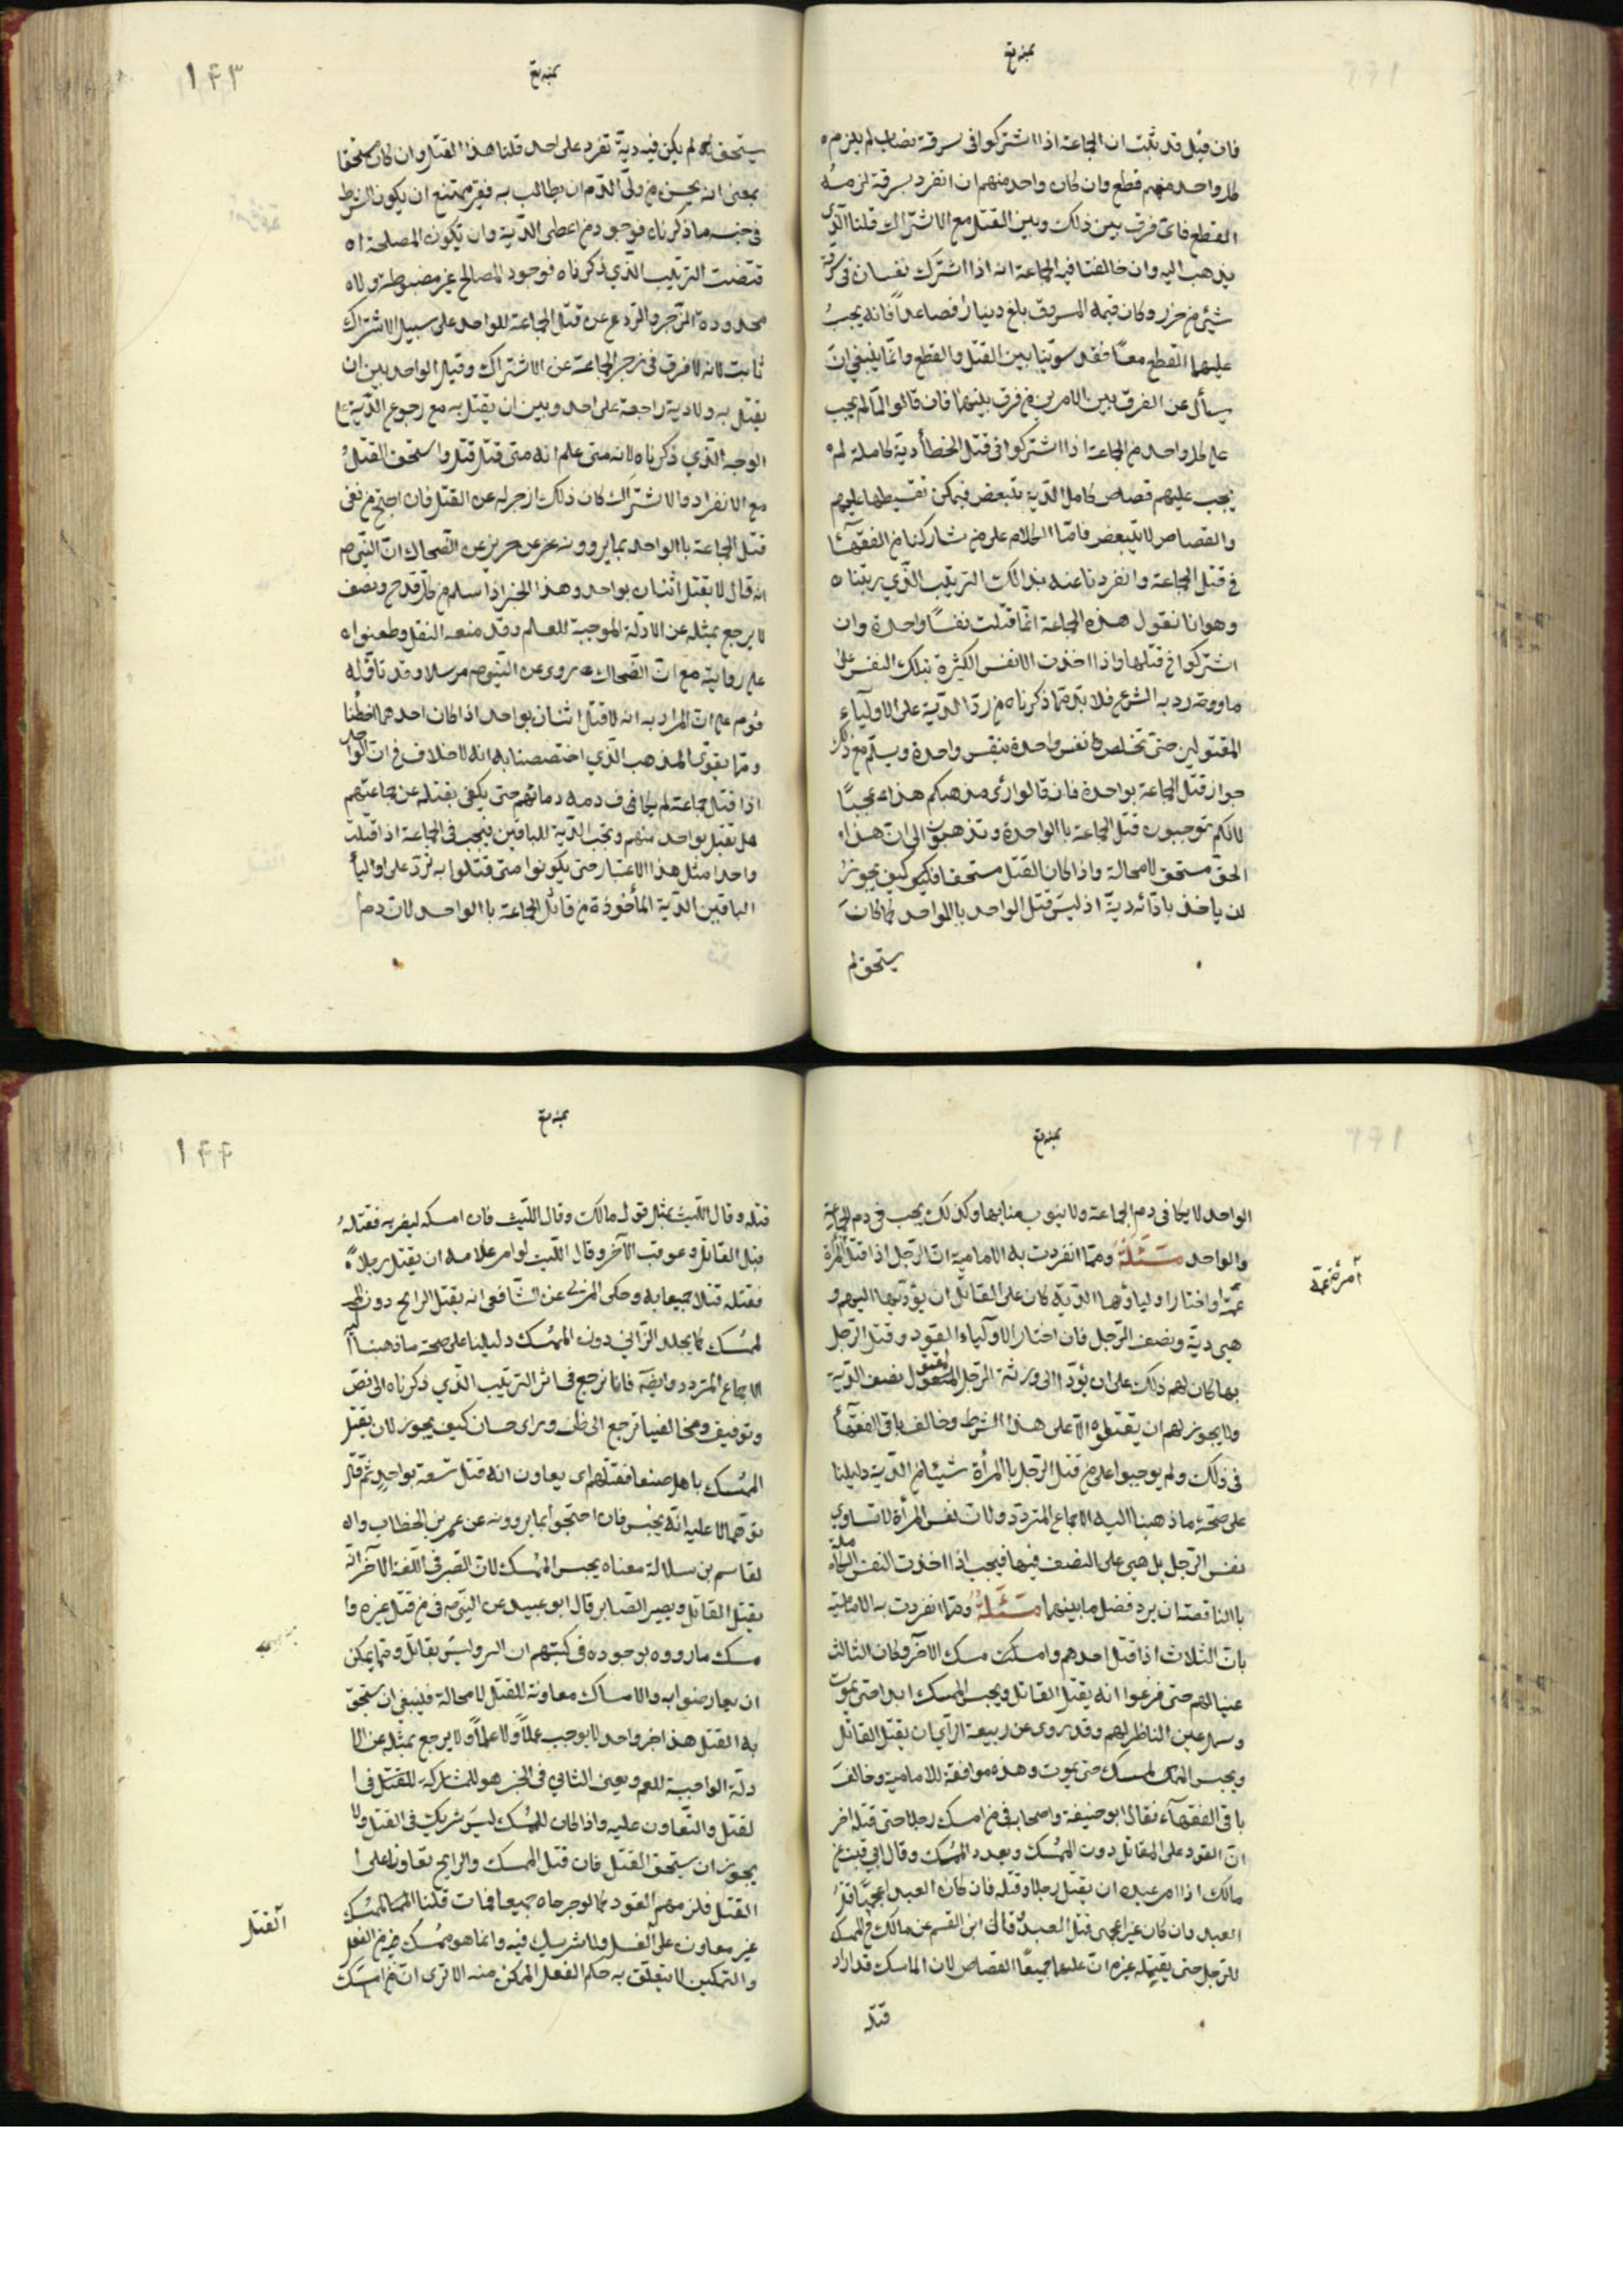 فان قيل قد ثبت ان الجماعة اذا اشتركوا فى سرقة نصاب لم يلزم ه
كل واحد منهم قطع وان كان واحد منهم ان انفرد بسرقة لزمه
القطع فاى فرق بين ذلك وبين القتل مع الاشتراك قلنا الذى
يذهب اليه وان خالفنا فيه الجماعة انه اذا اشترك نفسان فى سرقة
شيئ من حرز وكان قيمة المسروق بلغ دينارا فصاعداً فانه يجب
عليهما القطع معاً فقد سوينا بين القتل والقطع وانما ينبغى ان
يسأل عن الفرق بين الامرين من فرق بينهما فان قالوا لما لم يجب
على كل واحد من الجماعة اذا اشتركوا فى قتل الخطأ دية كاملة لم ه
يجب عليهم قصاص كامل الدية يتبعض فيمكن تقسيطها عليهم
والقصاص لا يتبعض فامّا الكلام على من شاركنا من الفقهآء
فى قتل الجماعة وانفردنا عنه بذلك الترتيب الذى رتبناه
وهو انا نقول هذه الجماعة انما قتلت نفساً واحدة وان
اشتركوا فى قتلها واذا اخذت الانفس الكثيرة بتلك النفس على
ما ورد به الشرع فلا بد مما ذكرناه من رد الدية على الاولياء
المقتولين حتى تخلص نفس واحدة بنفس واحدة ويسلم مع ذلك
جواز قتل الجماعة بواحدة فان قالوا رأى مذهبكم هذا عجيباً
لانكم توجبون قتل الجماعة با الواحدة وتذهبون الى ان هذا ه
الحق مستحق لا محالة واذا كان القتل مستحقا فكيف يجوز
لن ياخذ بازائه دية اذ ليس قتل الواحد باالواحد كما كان
يستحق لم
١۴٣
يستحق لم يكن فيه دية تفرد على احد قلنا هذا القتل وان كان مستحقا
بمعنى انه يحسن من ولى الدم ان يطالب به فغير ممتنع ان يكون الشرط
فى حسنه ما ذكرناه فوجود من اعطى الدية وان تكون المصلحة ا ه
قتضت الترتيب الذى ذكرناه فوجود المصالح غير مضبوطة ولا ه
محدودة الزجر والردع عن قتل الجماعة للواحد على سبيل الاشتراك
ثابت لانه لا فرق فى زجر الجماعة عن الاشتراك وقتل الواحد بين ان
يقتل به ولا دية راجعة على احد وبين ان يقتل به مع رجوع الدية على
الوجه الذى ذكرناه لانه متى علم انه متى قتل قتل واستحق القتل
مع الانفراد والاشتراك كان ذلك ازجر له عن القتل فان احتج من نفى
قتل الجماعة باالواحد بما يروونه عن جريبر عن الضحاك ان النبى ص
انه قال لا يقتل اثنان بواحد وهذا الخبر اذا سلم من كل قدح وضعف
لا يرجع بمثله عن الادلة الموجبة للعلم وقد ضعفه النقل وطعنوا ه
على روايته مع ان الضحاك روى عن النبى ص مرسلا وقد تأوله
قوم على ان المراد به انه لا قتل اثنان بواحد اذا كان احدهما خطئا
ومما يقوى المذهب الذى اختصصنا به انه لا خلاف فى ان الواحد
اذا قتل جماعة لم يكافى دمه دمائهم حتى يكفى بقتله عن جماعتهم
بل يقتل بواحد منهم وتجب الدية للباقين فيجب فى الجماعة اذا قتلت
واحدا مثل هذا الاعتبار حتى يكونوا متى قتلوا به ترد على اوليأ
الباقين الدية المأخوذة من قاتل الجماعة باالواحد لان دم
الواحد لا يكافى دم الجماعة ولا ينوب منابها وكذلك يجب فى دم الجماعة
والواحد مسئلة ومما انفردت به الامامية ان الرجل اذا قتل المرأة
عمدا واختار اولياؤها الدية كان على القاتل ان يؤدتها اليهم و
هى دية ونصف الرجل فان اختار الاولياء القود وقتل الرجل
بها كان لهم ذلك على ان يؤدوا الى ورثة الرجل المقتول نصف الدية
ولا يجوز لهم ان يقتلوه الا على هذا الشرط وخالف باقى الفقهآء
فى ذلك ولم يوجبوا على من قتل الرجل باالمرأة شيئا من الدية دليلنا
على صحة ما ذهبنا اليه الاجماع المتردد ولان نفس المرأة لا تساوى
نفس الرجل بل هى على النصف فيها فيجب اذا اخذت النفس الكاملة
باالناقصة ان يرد فضل ما بينهما مسئلة ومما انفردت به الامامية
بان الثلاث اذا قتل احدهم وامسكت مسك الآخر وكان الثالث
عينا لهم حتى فرغوا انه يقتل القاتل ويحبس الممسك ابدا حتى يموت
وسمل عين الناظر لهم وقد روى عن ربيعة الرأى ان يقتل القاتل
ويحبس الممسك حتى يموت وهذه موافقة للامامية وخالف
باقى الفقهآء فقال ابو حنيفة واصحابه فى من امسك رجلا حتى قتله اخر
ان القود على القاتل دون الممسك وبعدد الممسك وقال
مالك اذا امر عبده ان يقتل رجلا وقتله فان كان العبد اعجميّاً قتل
العبد وان كان غير اعجمى قتل العبد وقال ابن القسم عن مالك فى الممسك
للرجل حتى يقتله غيره ان عليهما جميعاً القصاص لان الماسك قد اراد
قتله
١۴۴
قتله وقال الليث بمثل قول مالك وقال الليث فان امسكه ليضربه فقتله
قتل القاتل وعوقب الآخر وقال الليث لو امر غلامه ان يقتل رجلا ه
فقتله قتلا جميعا به وحكى المزنى عن الشافعى انه يقتل الرابح دون
لممسك كما يجلد الزانى دون الممسك دليلنا على صحة ما ذهبنا
الاجماع المتردد وايضا فانا نرجع فى اثر الترتيب الذى ذكرناه الى نص
وتوقيف ومخالفينا ترجع الى ظن وراى حسان كيف يجوز لان يقتل
الممسك باهل صنعا فقتلهم اى يعاون انه قتل تسعة بواحد ثم قال
لو تمالا عليه انه يحبس فان احتجوا بما يروونه عن عمر بن الخطاب وا ه
لقاسم بن سلالة معناه يحبس الممسك لان الصبر فى اللغة الآخر انه
يقتل القاتل ويصبر الصابر قال ابو عبيد عن النبى ص فى من قتل غيره وا
مسك ما رووه بوجوده فى كتبهم ان السر وليس بقاتل ومما يمكن
ان يعارضوا به والامساك معاونة للقتل لا محالة فلينبغى ان يستحق
به القتل هذا خبر واحد لا يوجب عملاً ولا علماً ولا يرجع بمثله عن الا
دلة الواجبة للعم ويعين الثانى فى الخبر هو للمشاركة للقتل فى ا
لقتل والتعاون عليه واذا كان للممسك ليس شريك فى القتل ولا
يجوز ان يستحق القتل فان قتل الممسك والرابح تعاونا على ا
القتل فلزمهم القود كما لو جرحاه جميعا فمات قلنا الممسك
غير معاون على القتل ولا شريك فيه وانما هو ممسك من الفعل
والتمكين لا يتعلق به حكم الفعل الممكن منه الا ترى ان من امسك
القتل